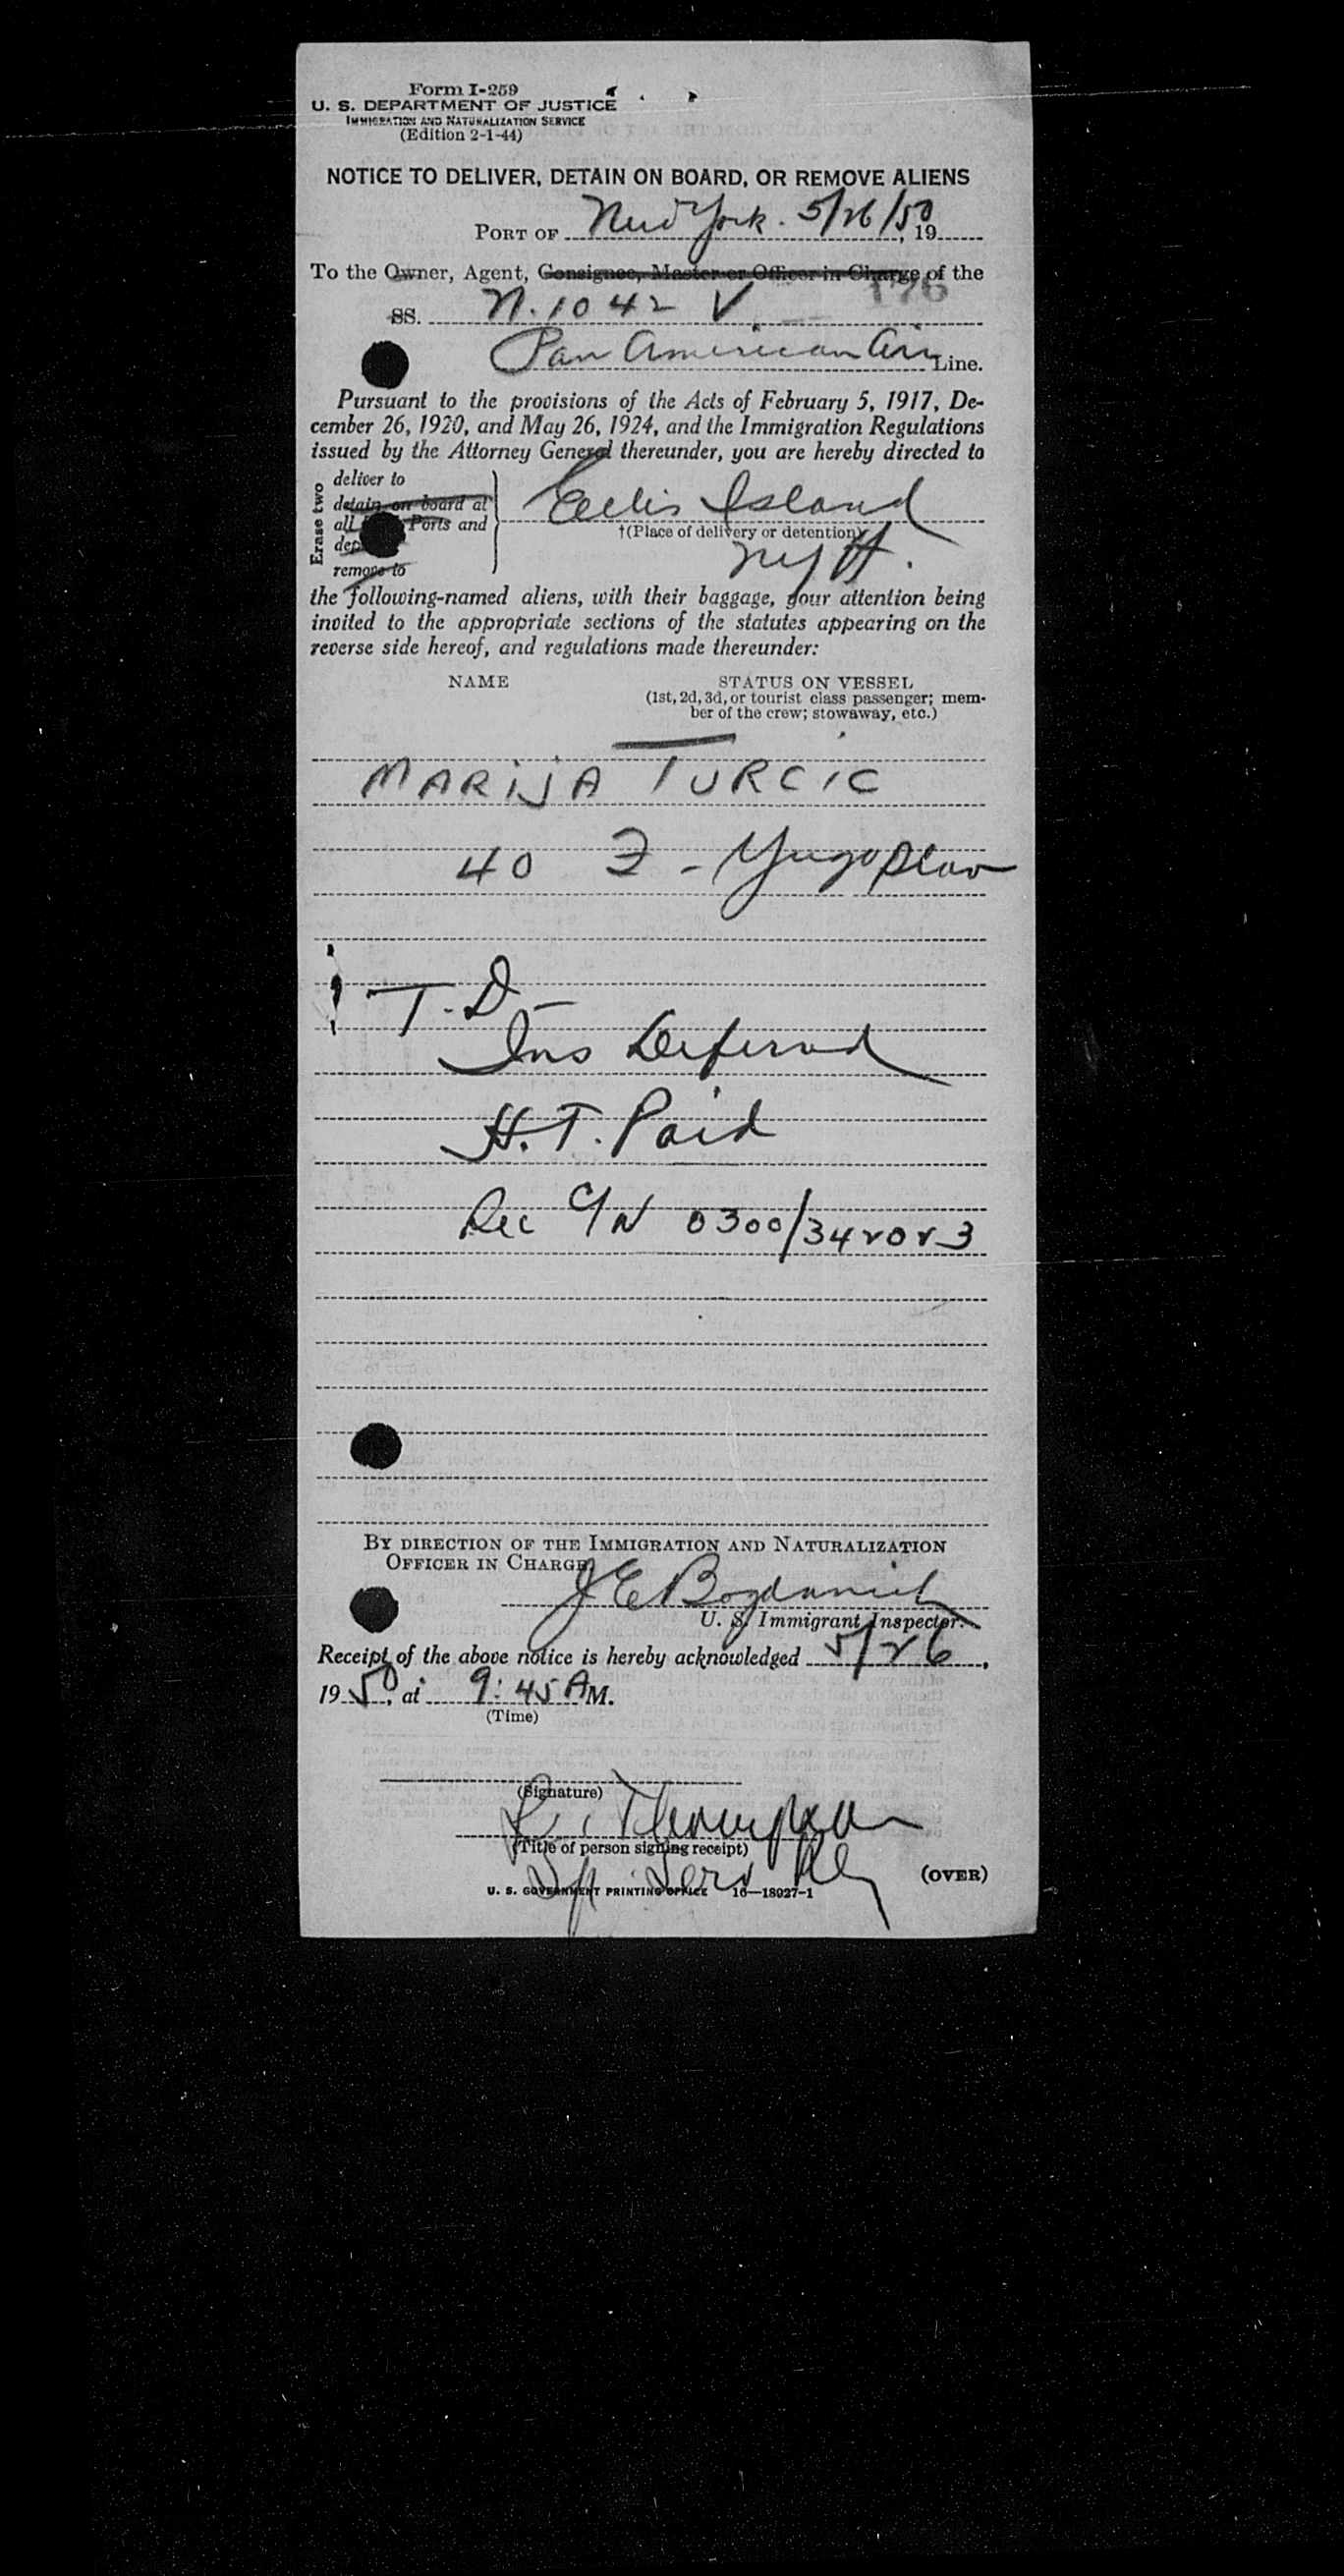 Form I-259
U. S. DEPARTMENT OF JUSTICE
IMMIGRATION AND NATURALIZATION SERVICE
(Edition 2-1-44)
NOTICE TO DELIVER, DETAIN ON BOARD, OR REMOVE ALIENS
PORT OF New York. 5/26/50, 19
To the Owner, Agent, Consignee, Master or Officer in Charge of the
176
SS. N. 1042 V
Pan American Air Line.
Pursuant to the provisions of the Acts of February 5, 1917, De-
cember 26, 1920, and May 26, 1924, and the Immigration Regulations
issued by the Attorney General thereunder, you are hereby directed to
Erase two
deliver to
detain on board at
all Ports and
remove to
Ellis Island
†(Place of delivery or detention)
NYH.
the following-named aliens, with their baggage, your attention being
invited to the appropriate sections of the statutes appearing on the
reverse side hereof, and regulations made thereunder:
NAME STATUS ON VESSEL
(1st, 2d, 3d, or tourist class passenger; mem-
ber of the crew; stowaway, etc.)
MARIJA TURCIC
40 F - Yugoslav
T.D -
Ins Deferred
H.T. Paid
Rec C/N 0300/342023
BY DIRECTION OF THE IMMIGRATION AND NATURALIZATION
OFFICER IN CHARGE
J E Bogdanich
U. S. Immigrant Inspector.
Receipt of the above notice is hereby acknowledged 5/26,
1950, at 9:45 AM.
(Time)
(Signature)
Thompson
(Title of person signing receipt)
Serv
(OVER)
U. S. GOVERNMENT PRINTING OFFICE 16—18027-1